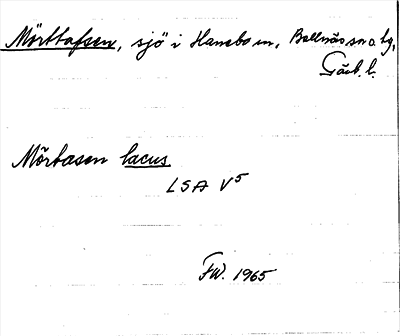 Mörttafsen, sjö i Hanebo sn, Bollnäs sn o. hg,
Gävl. l.
Mörtasen lacus
LSA V5
FW. 1965